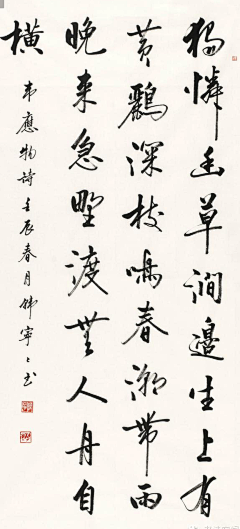 獨憐幽草澗邊生上有
黄鸝深樹鳴春潮帶雨
晚来急野渡無人舟自
橫
韋應物詩壬辰春月韓寧々书